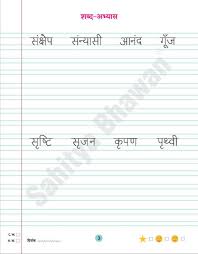 शब्द-अभ्यास
संक्षेप संन्यासी आनंद गूँज
Sahitya Bhawan
सृष्टि सृजन कृपण पृथ्वी
3